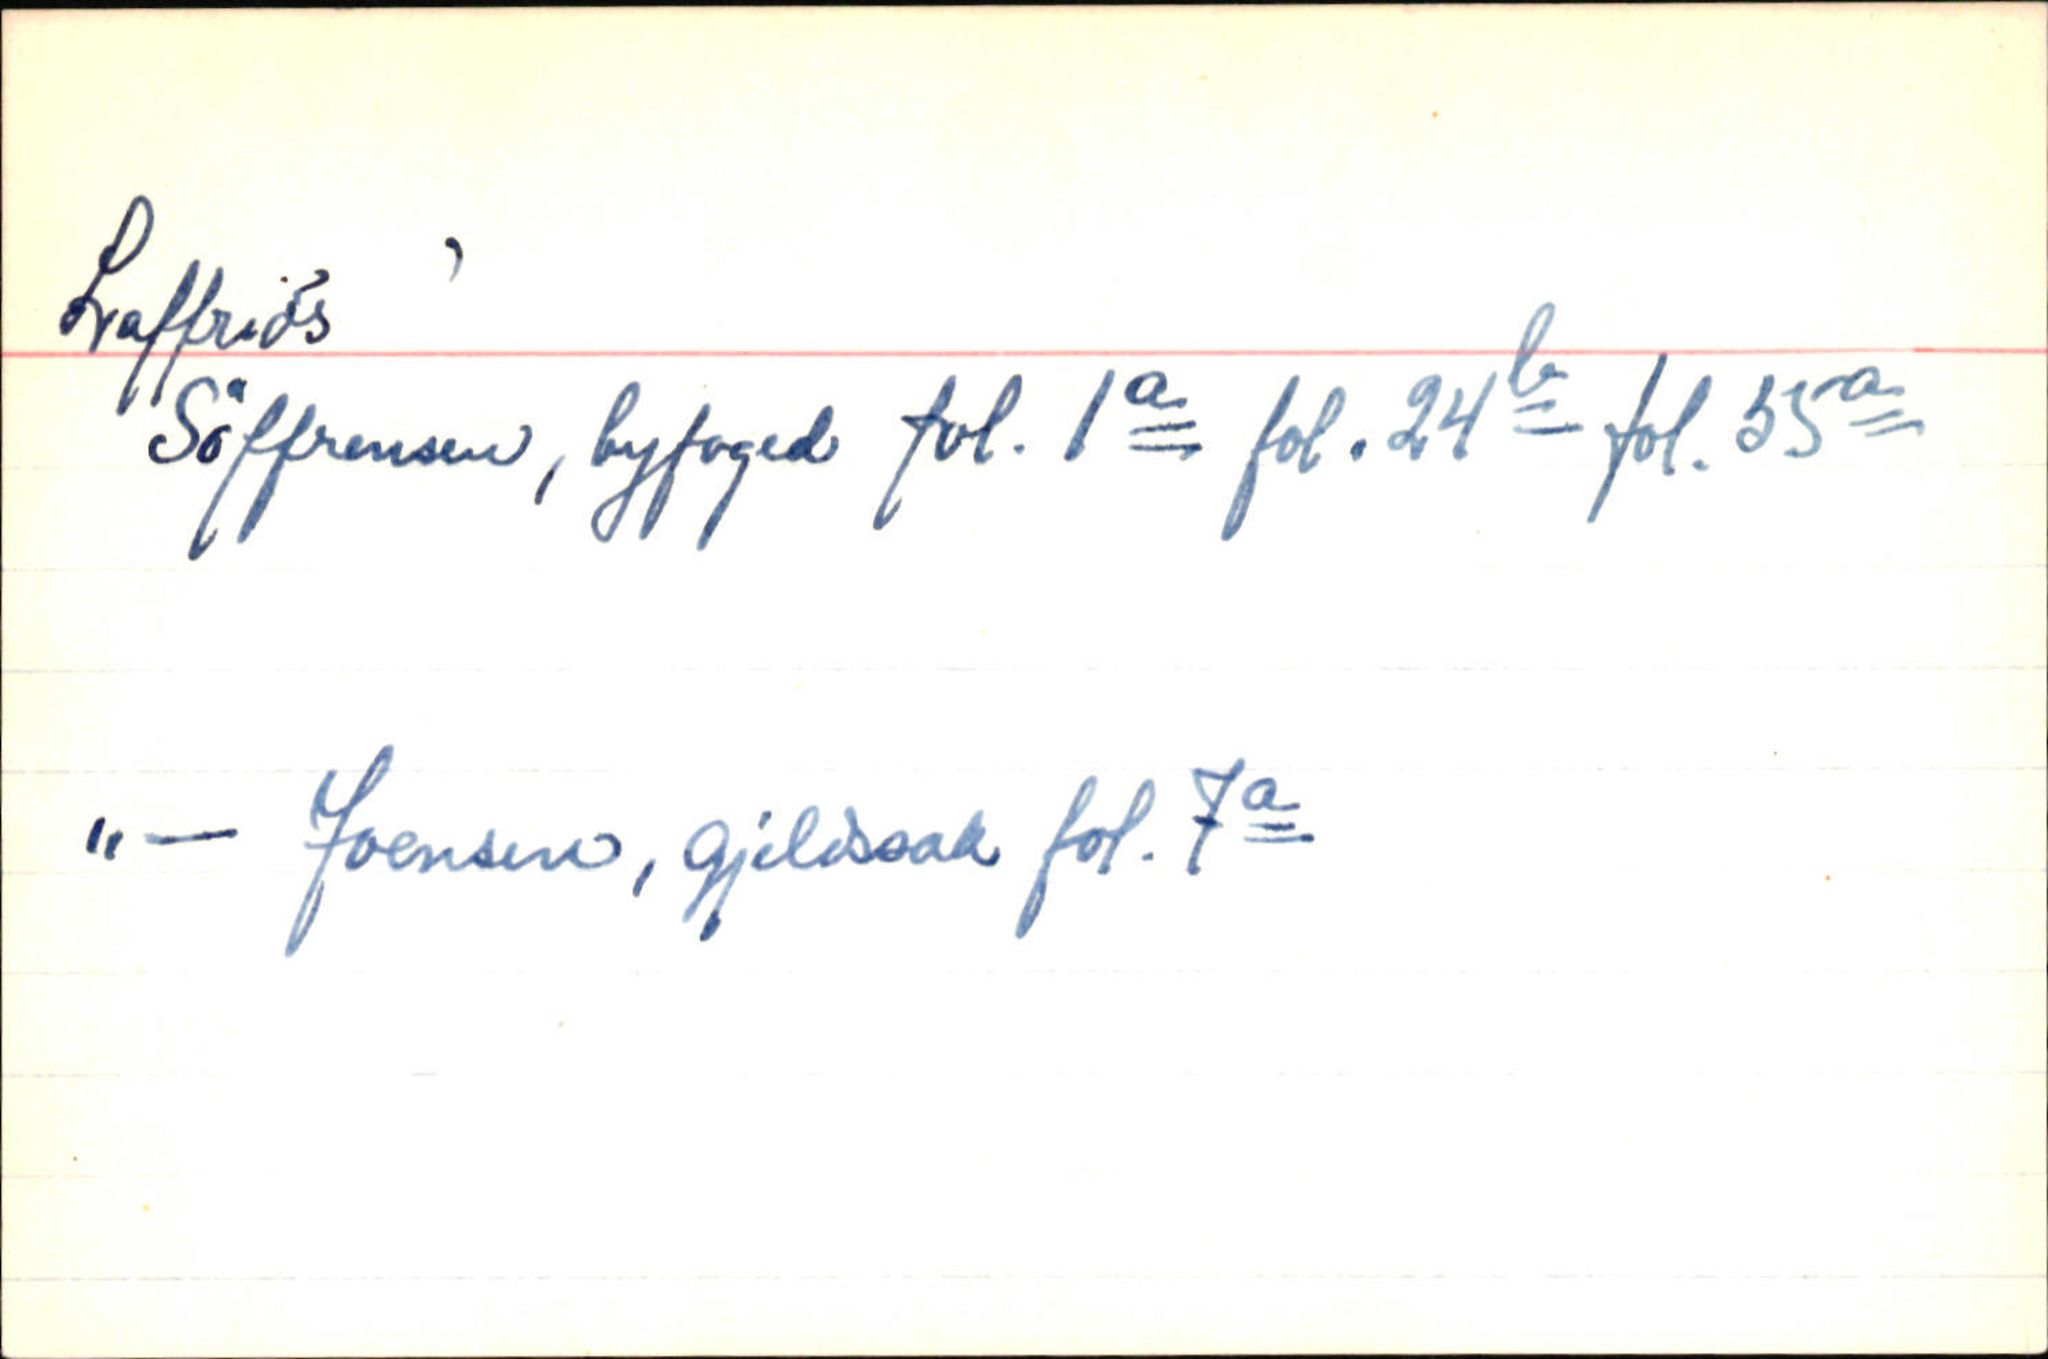 Laffrids
Söffrensen, byfoged fol. 1a fol. 24b fol. 35a
"— Joensen, gjeldssak fol. 7a